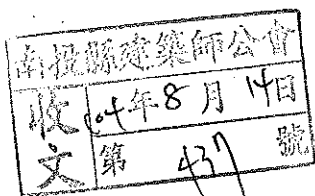 南投縣建築師公會
收文
104年8月14日
第437號